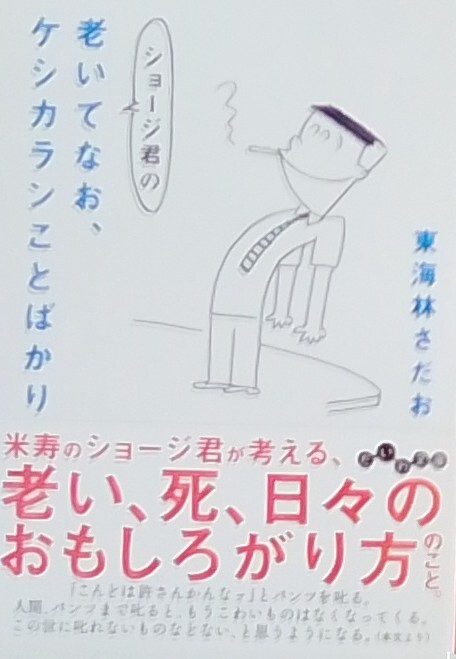 ショージ君の
老いてなお、
ケシカランことばかり
東海林さだお
だいわ文庫
米寿のショージ君が考える、
老い、死、日々の
おもしろがり方のこと。
「こんどは許さんかんなッ」とパンツを叱る。
人間、パンツまで叱ると、もうこわいものはなくなってくる。
この世に叱れないものなどない、と思うようになる。(本文より)